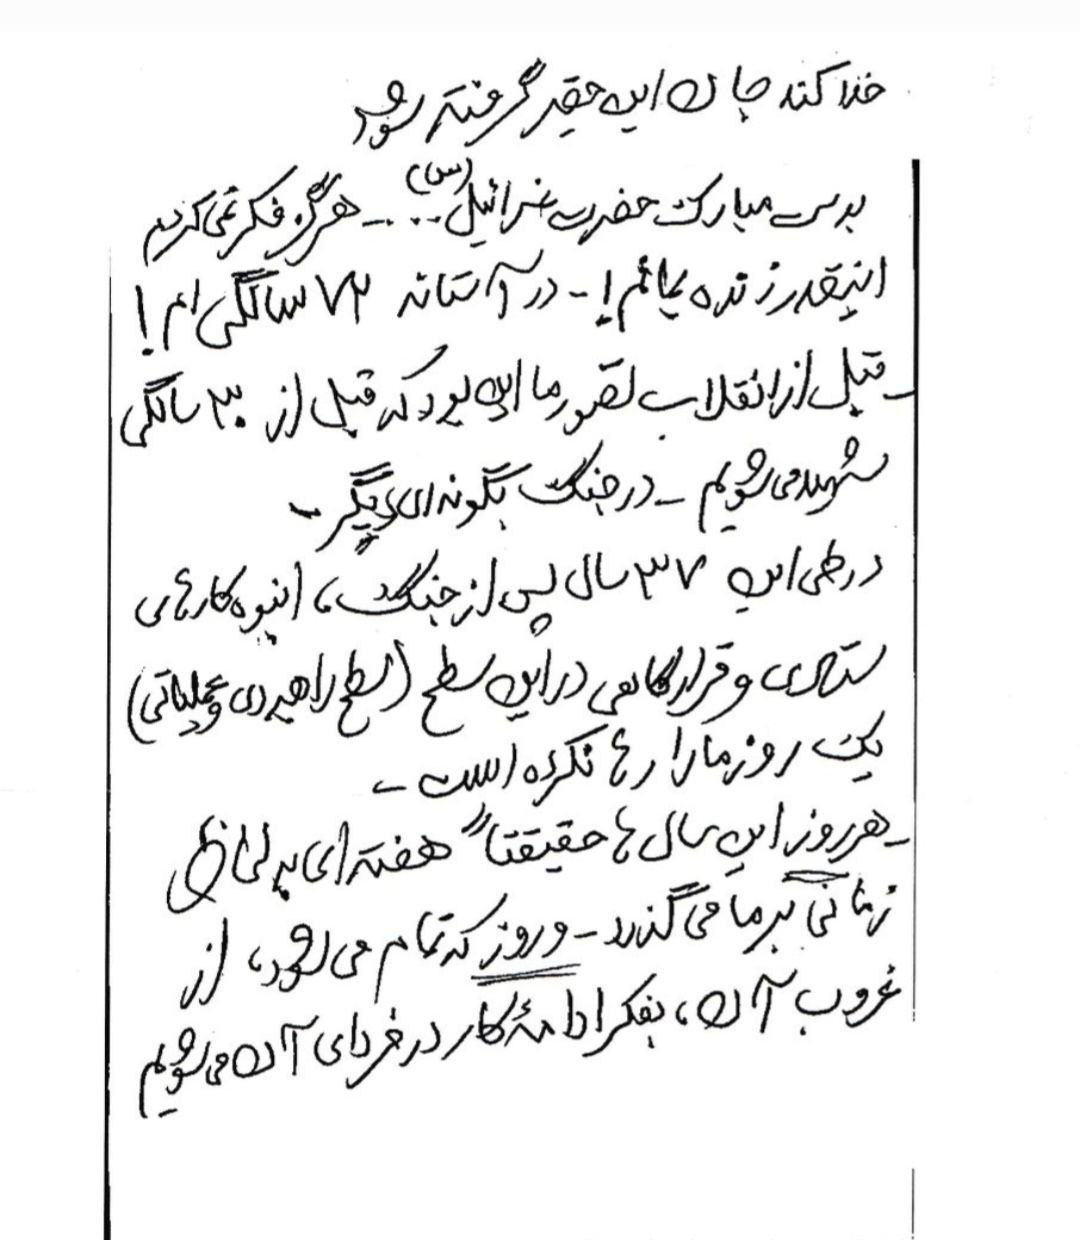 خدا کند جان این حقیر گرفته شود
بدست مبارک حضرت عزرائیل (س) .. - هرگز فکر نمی کردم
اینقدر زنده بمانم! - در آستانه ۷۳ سالگی ام !
- قبل از انقلاب تصور ما این بود که قبل از ۳۰ سالگی
شهید می شویم - در جنگ بگونه ای دیگر -
در طی این ۳۷ سال پس از جنگ، انبوه کارهای
ستادی و قرارگاهی در این سطح (سطح راهبردی و عملیاتی)
یک روز ما را رها نکرده است -
- هر روز این سال ها حقیقتاً هفته ای به لحاظ
زمانی بر ما می گذرد - و روز که تمام می شود، از
غروب آن، بفکر ادامهٔ کار در فردای آن می شویم